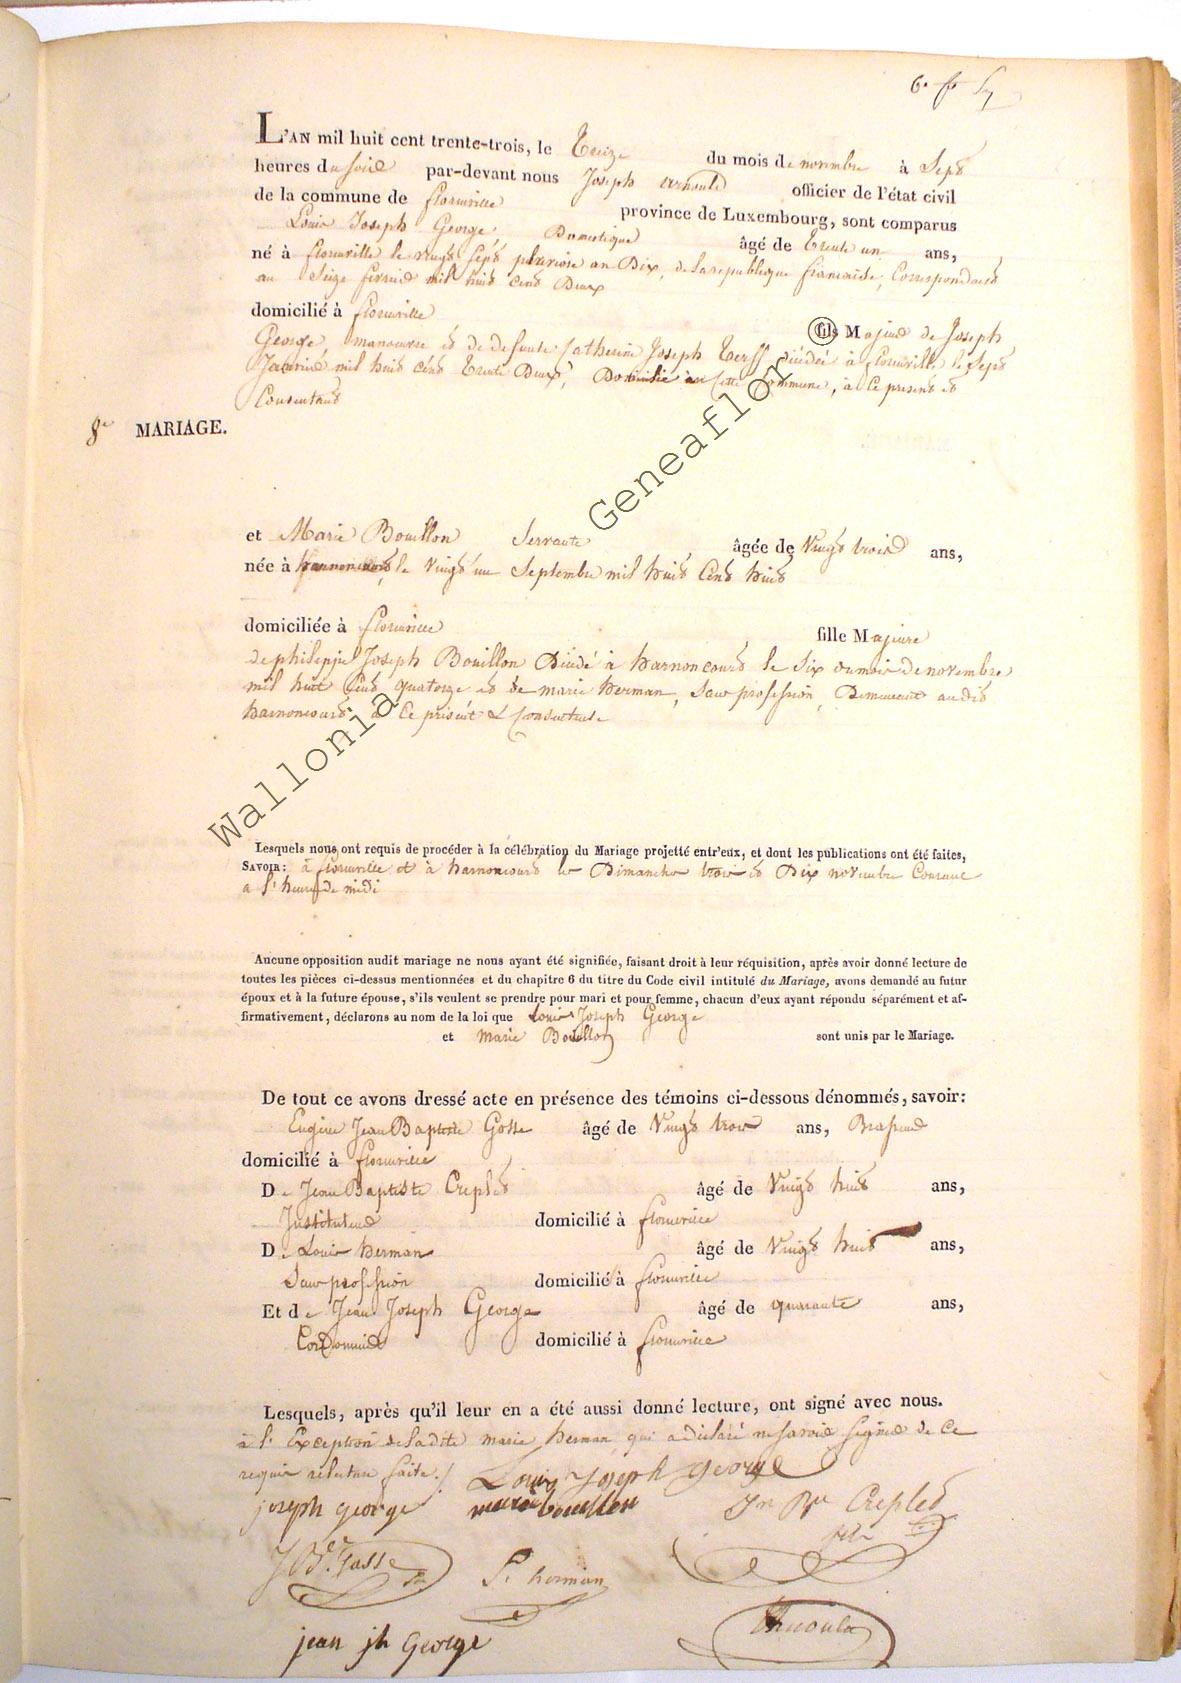 L'AN mil huit cent trente-trois, le treize du mois de novembre à Sept
heures du soir par-devant nous Joseph Arnould officier de l'état civil
de la commune de florenville province de Luxembourg, sont comparus
Louis Joseph George Domestique âgé de trente un ans,
né à florenville le vingt sept pluviose an Dix, de la republique francaise, Correspondant
au Seize fevrier mil huit cent Deux
domicilié à florenville
fils Majeur de Joseph
George manoeuvre et de defunte Catherine Joseph décédée à florenville le Sept
Janvier mil huit cent trente Deux, Domicilié en Cette Commune, à Ce present et
Consentant
8e MARIAGE.
et Marie Bouillon Servante âgée de Vingt trois ans,
née à harnoncourt, le vingt un Septembre mil huit Cent huit
domiciliée à florenville fille Majeure
de philippe Joseph Bouillon Décédé à harnoncourt le Six du mois de novembre
mil huit Cent quatorze et de marie herman, Sans profession, Demeurant audit
harnoncourt à Ce présent & Consentante
Lesquels nous ont requis de procéder à la célébration du Mariage projetté entr'eux, et dont les publications ont été faites,
SAVOIR: à florenville et à harnoncourt les Dimanches trois et Dix novembre Courant
a l'heure de midi
Aucune opposition audit mariage ne nous ayant été signifiée, faisant droit à leur réquisition, après avoir donné lecture de
toutes les pièces ci-dessus mentionnées et du chapitre 6 du titre du Code civil intitulé du Mariage, avons demandé au futur
époux et à la future épouse, s'ils veulent se prendre pour mari et pour femme, chacun d'eux ayant répondu séparément et af-
firmativement, déclarons au nom de la loi que Louis Joseph George
et Marie Bouillon sont unis par le Mariage.
De tout ce avons dressé acte en présence des témoins ci-dessous dénommés, savoir:
Eugène Jean Baptiste Gosse âgé de Vingt trois ans, Brasseur
domicilié à florenville
De Jean Baptiste Creplet âgé de Vingt huit ans,
Instituteur domicilié à florenville
De Louis herman âgé de Vingt huit ans,
Sans profession domicilié à florenville
Et de Jean Joseph George âgé de quarante ans,
Cordonnier domicilié à florenville
Lesquels, après qu'il leur en a été aussi donné lecture, ont signé avec nous.
à l'Exception de ladite marie herman qui a déclaré ne savoir Signer de Ce
requise lecture faite./ Louis Joseph george
joseph george marie bouillon Jn Bte Creplet
fils
Gosse L. herman
jean jh George Arnould
Wallonia Geneaflor ©